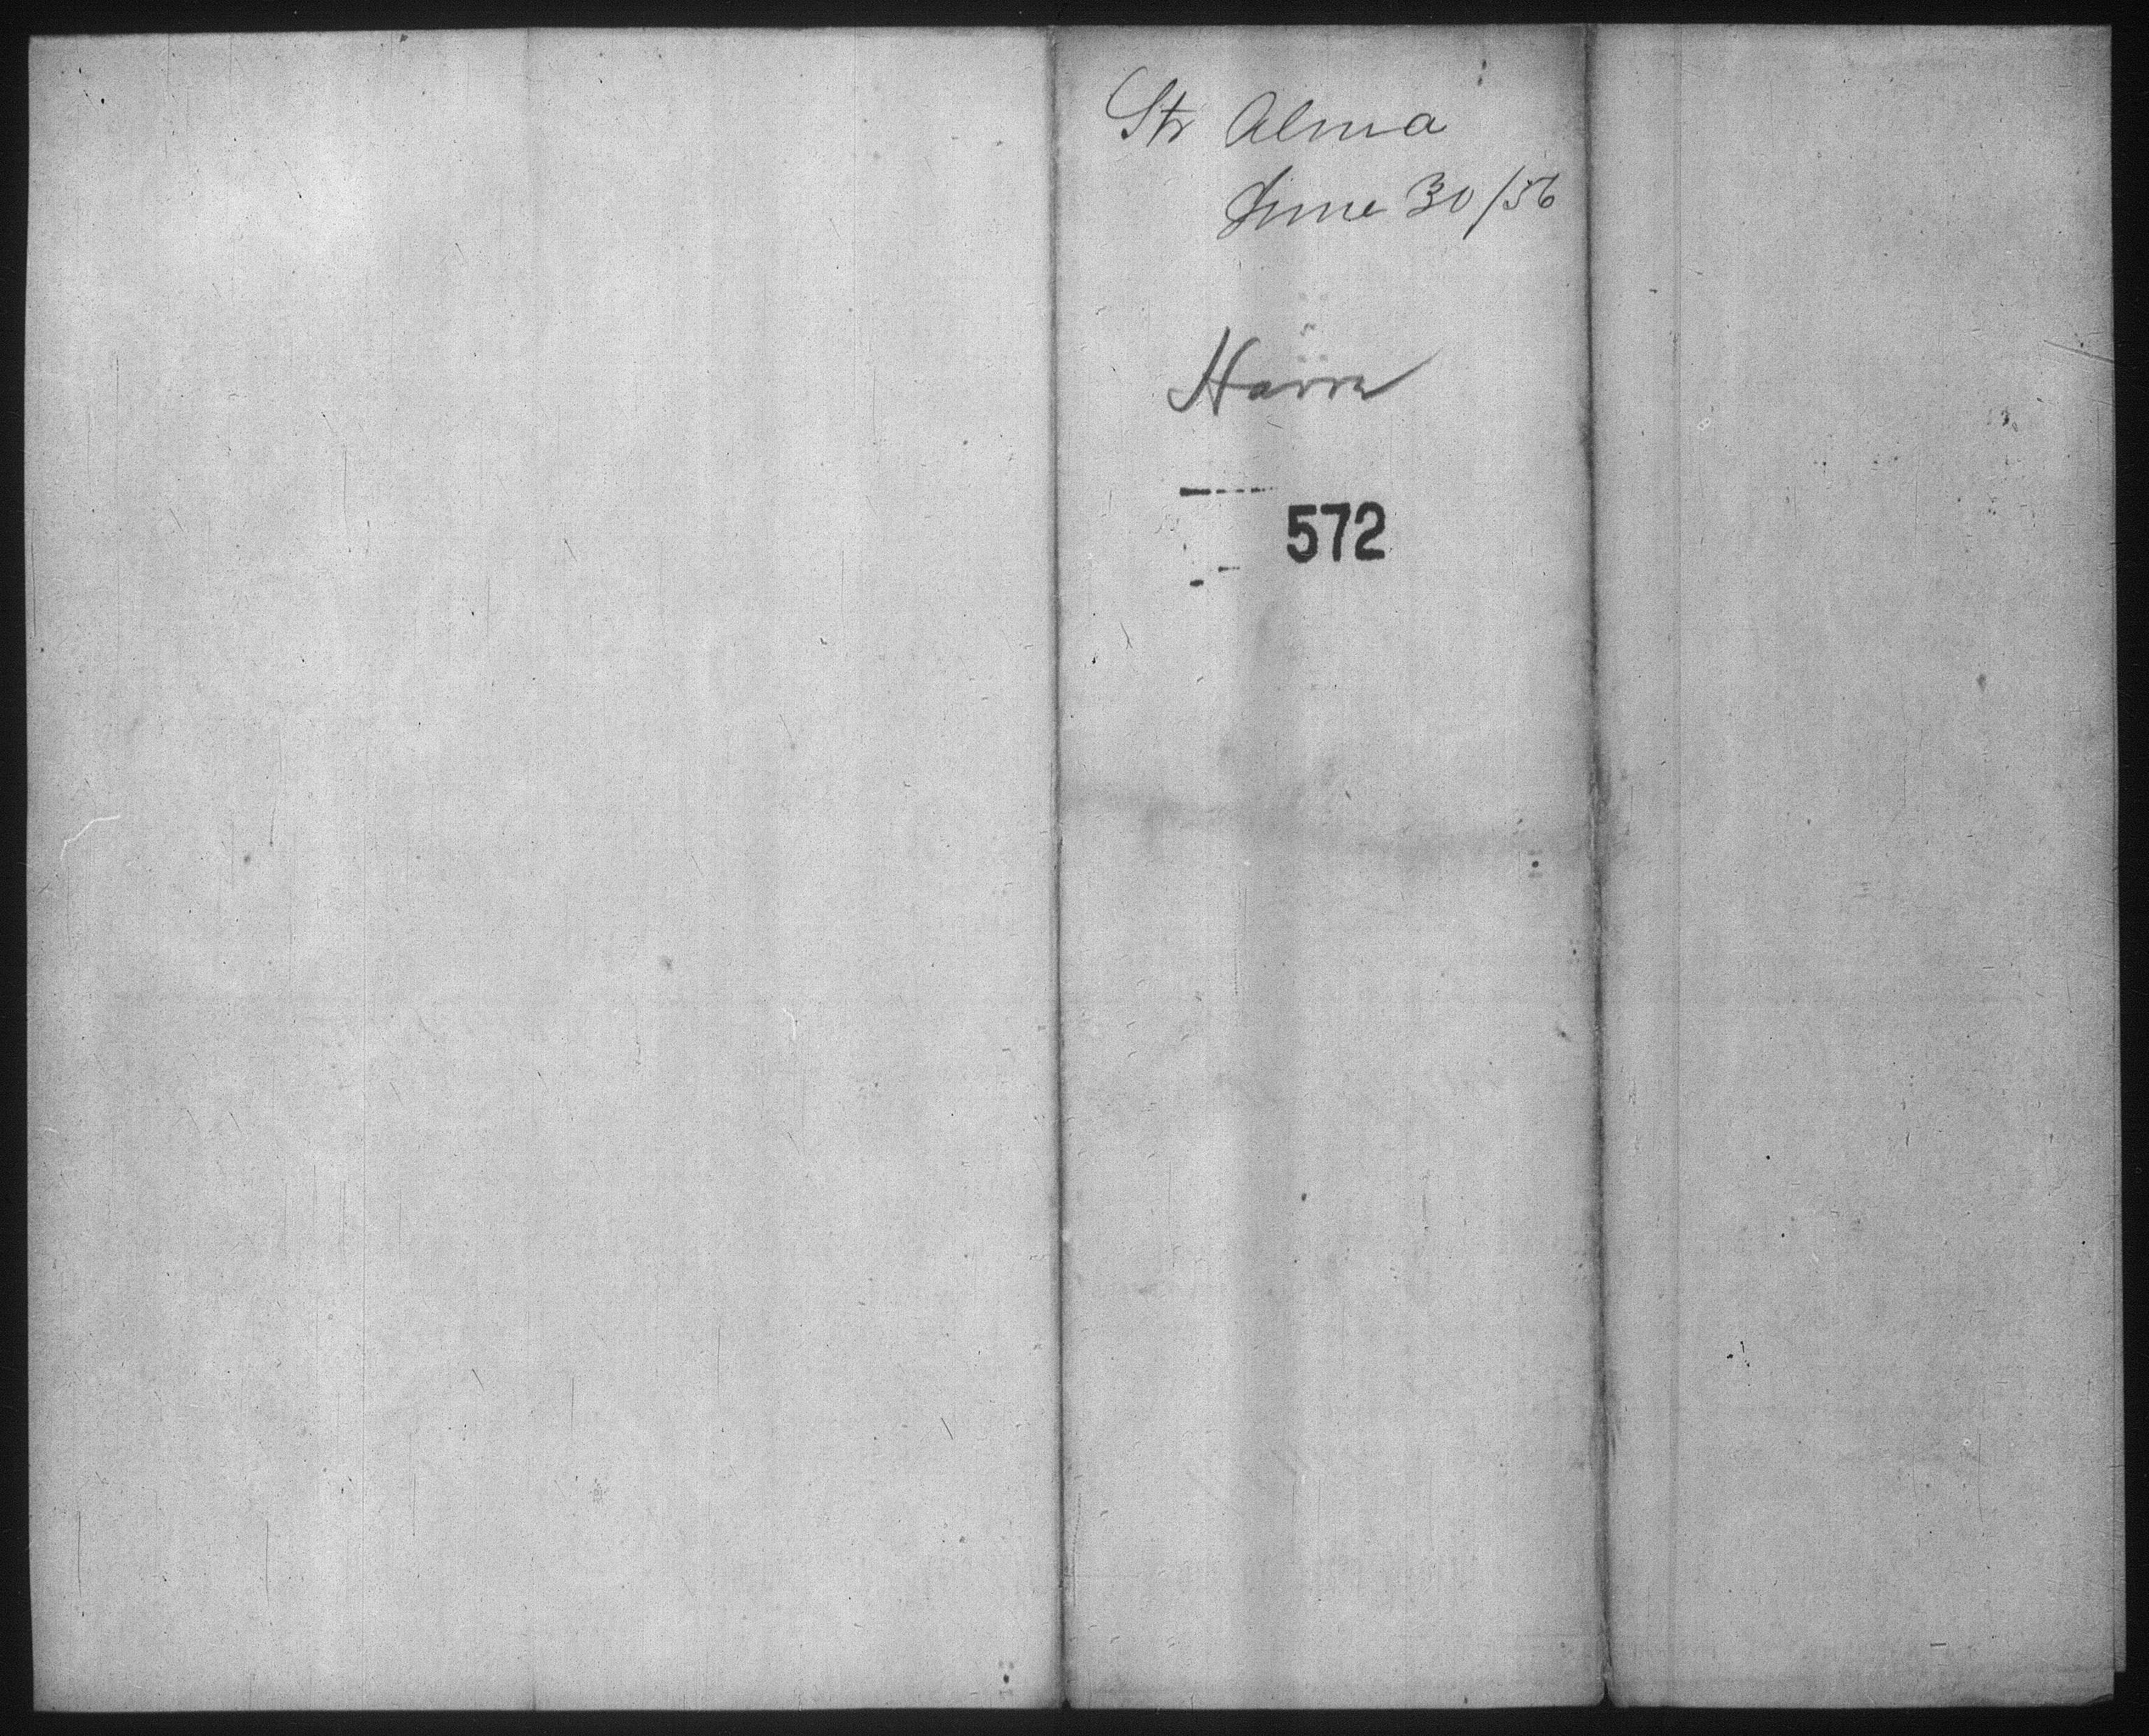 Str Alma
June 30/56
Havre
572